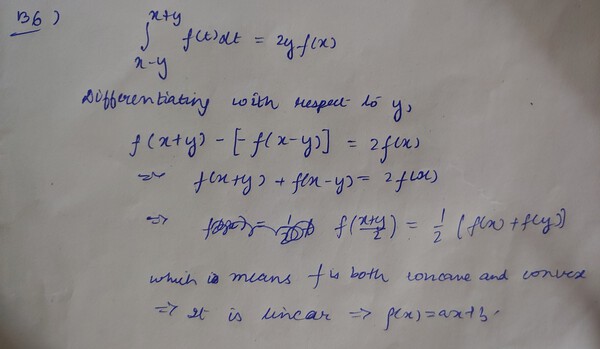 B6) ∫_{x-y}^{x+y} f(t)dt = 2y f(x)
Differentiating with respect to y,
f(x+y) - [-f(x-y)] = 2f(x)
⇒ f(x+y) + f(x-y) = 2f(x)
⇒ f((x+y)/2) = 1/2 (f(x) + f(y))
which is means f is both concave and convex
⇒ It is linear ⇒ f(x) = ax+b.